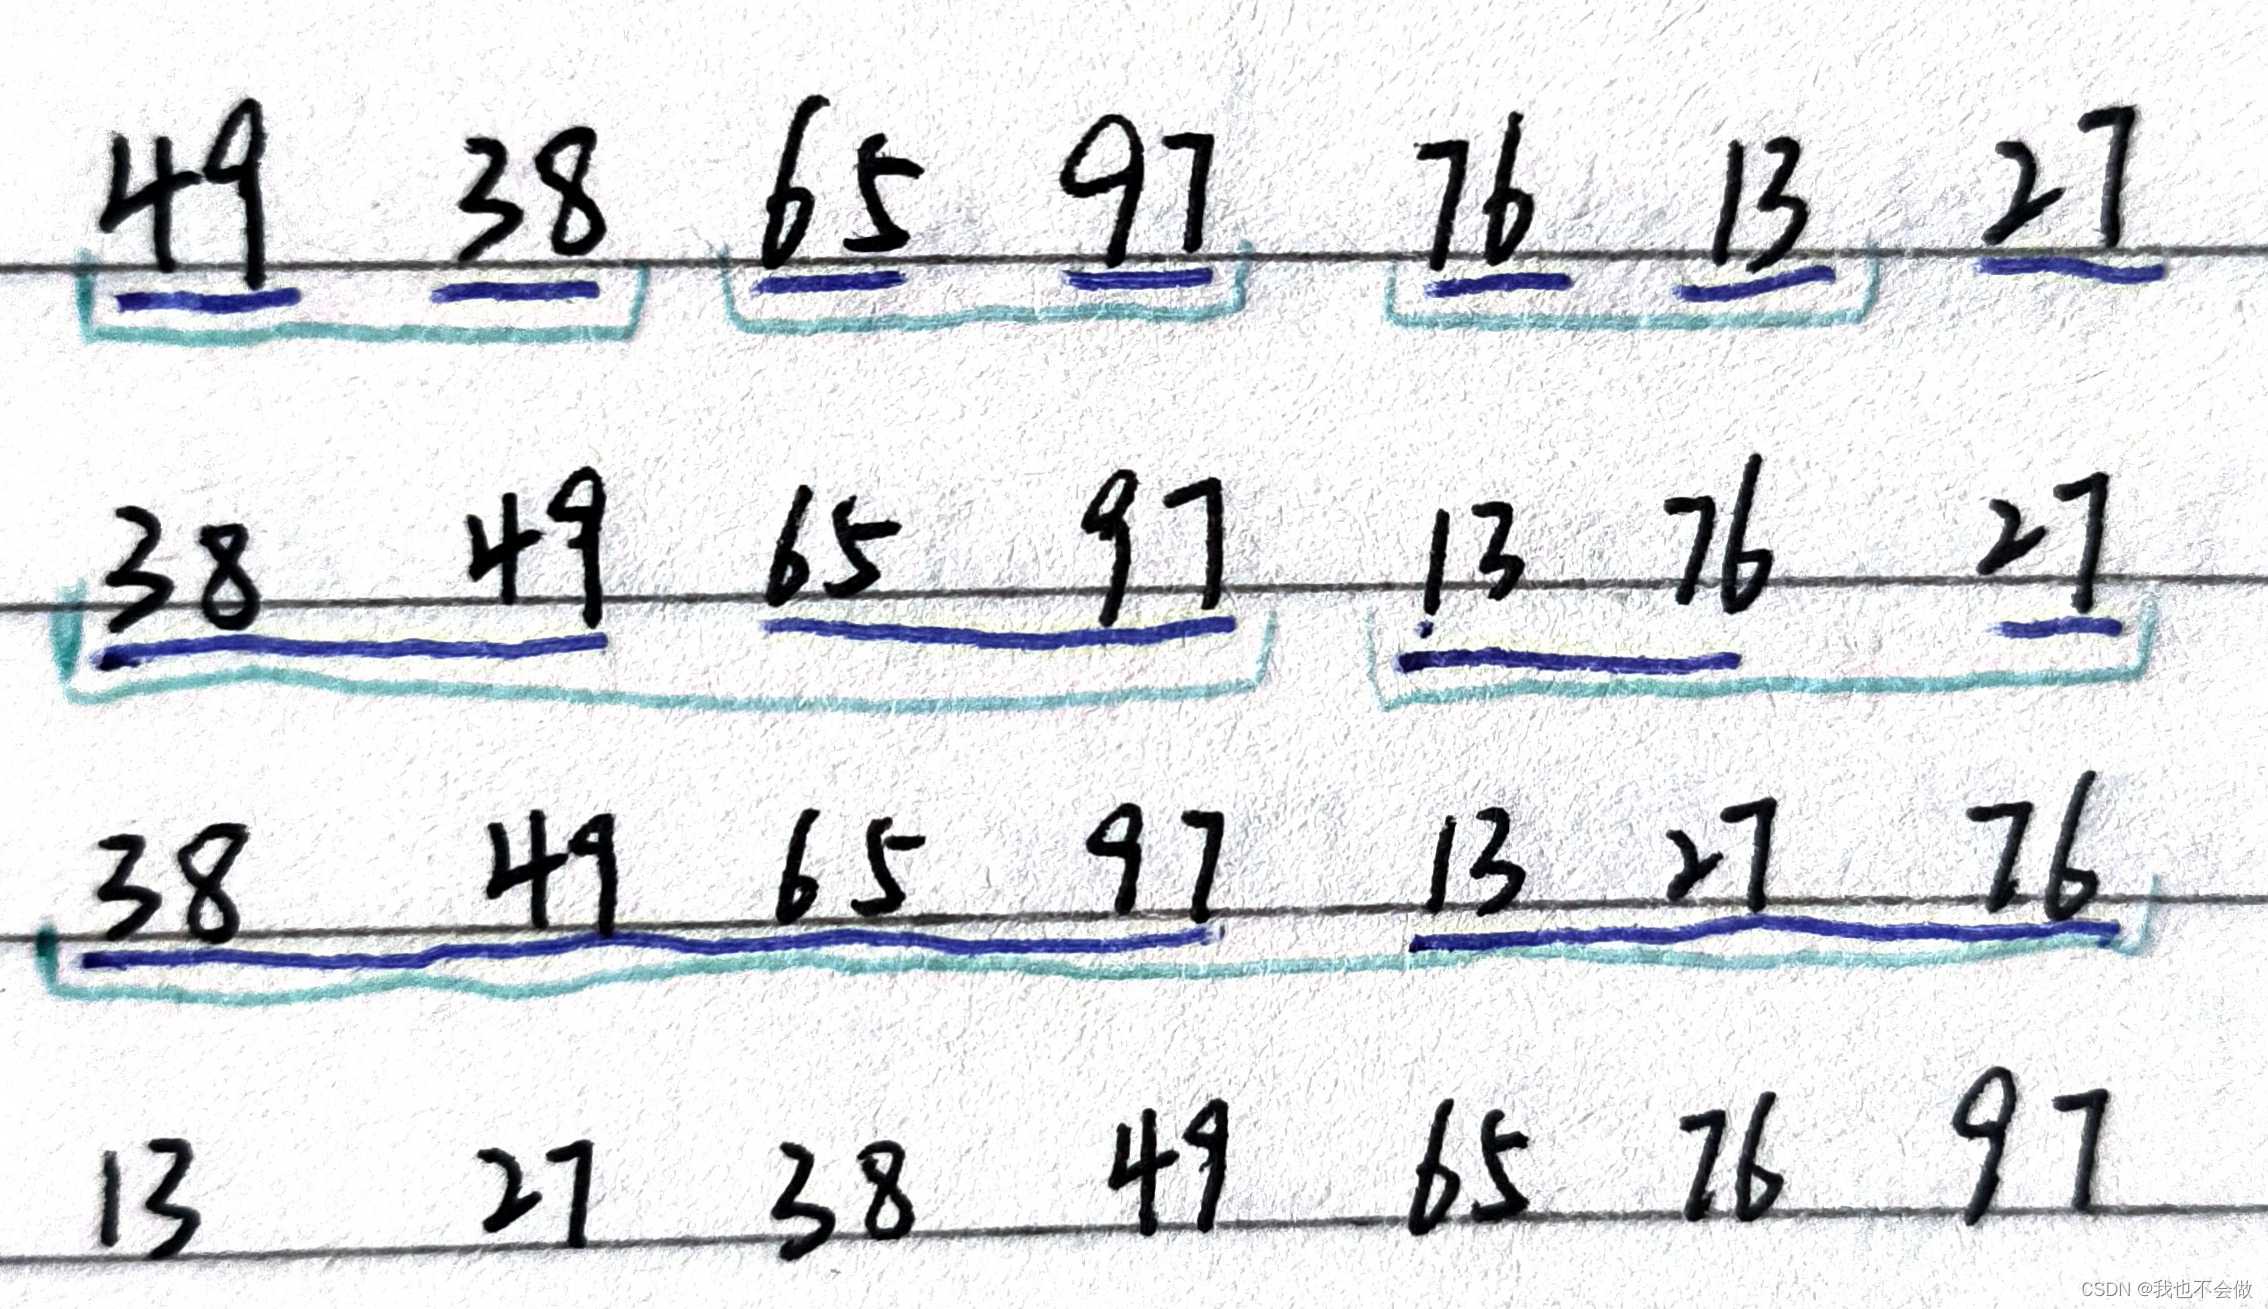 49 38 65 97 76 13 27
38 49 65 97 13 76 27
38 49 65 97 13 27 76
13 27 38 49 65 76 97
CSDN @我也不会做